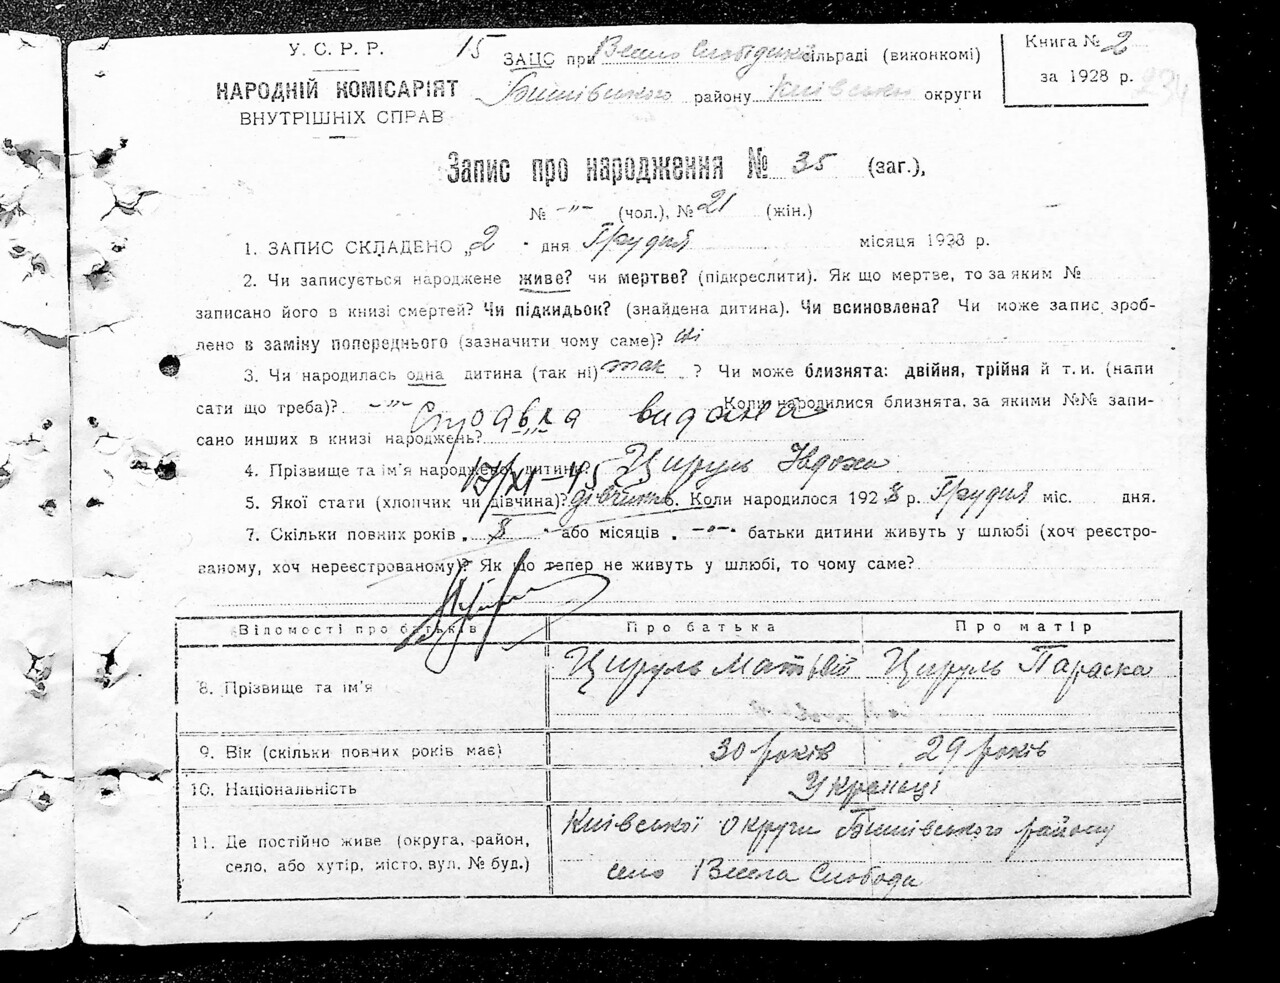 У. С. Р. Р.
НАРОДНІЙ КОМІСАРІЯТ
ВНУТРІШНІХ СПРАВ
15 ЗАЦС при Весело Слобідській сільраді (виконкомі)
Бишівського району Київської округи
Книга № 2
за 1928 р.
234
Запис про народження № 35 (заг.),
№ -„- (чол.), № 21 (жін.)
1. ЗАПИС СКЛАДЕНО „2 " дня Грудня місяця 1928 р.
2. Чи записується народжене живе? чи мертве? (підкреслити). Як що мертве, то за яким №
записано його в книзі смертей? Чи підкидьок? (знайдена дитина). Чи всиновлена? Чи може запис зроб-
лено в заміну попереднього (зазначити чому саме)? ні
3. Чи народилась одна дитина (так ні) так ? Чи може близнята: двійня, трійня й т. и. (напи
сати що треба)? -„- Коли народилися близнята, за якими №№ запи-
Справка видана
сано инших в книзі народжень? -„-
4. Прізвище та ім'я народженої дитини? Цируль Евдоха
17/XI-45
5. Якої стати (хлопчик чи дівчина)? дівчина 6. Коли народилося 1928 р. Грудня міс. дня.
7. Скільки повних років „ 8 " або місяців „ -„- " батьки дитини живуть у шлюбі (хоч реєстро-
ваному, хоч нереєстрованому)? Як що тепер не живуть у шлюбі, то чому саме?
Відомості про батьків Про батька Про матір
8. Прізвище та ім'я Цируль Матвій Цируль Параска
9. Вік (скільки повних років має) 30 років 29 років
10. Національність Українці
11. Де постійно живе (округа, район, Київської округи Бишівського району
село, або хутір, місто, вул. № буд.) село Весела Слобода